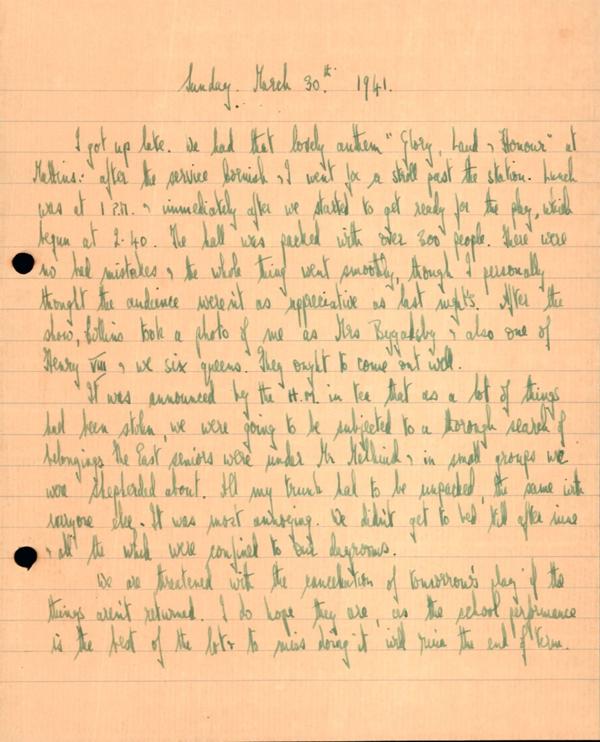 Sunday. March 30th. 1941.
I got up late. We had that lovely anthem "Glory, Laud & Honour" at
Mattins. After the service Cornish & I went for a stroll past the station. Lunch
was at 1 P.M. & immediately after we started to get ready for the play, which
began at 2.40. The hall was packed with over 300 people. There were
no bad mistakes & the whole thing went smoothly, though I personally
thought the audience weren't as appreciative as last night's. After the
show, Collins took a photo of me as Mrs & also one of
Henry VIII & we six queens. They ought to come out well.
It was announced by the H.M. in tea that as a lot of things
had been stolen, we were going to be subjected to a thorough search of
belongings. The East seniors were under Mr & in small groups we
were shepherded about. All my trunk had to be unpacked, the same with
everyone else. It was most annoying. We didn't get to bed till after nine
& all the while were confined to our dayrooms.
We are threatened with the cancelation of tomorrow's play if the
things aren't returned. I do hope they are, as the school performance
is the best of the lot & to miss doing it will ruin the end of term.